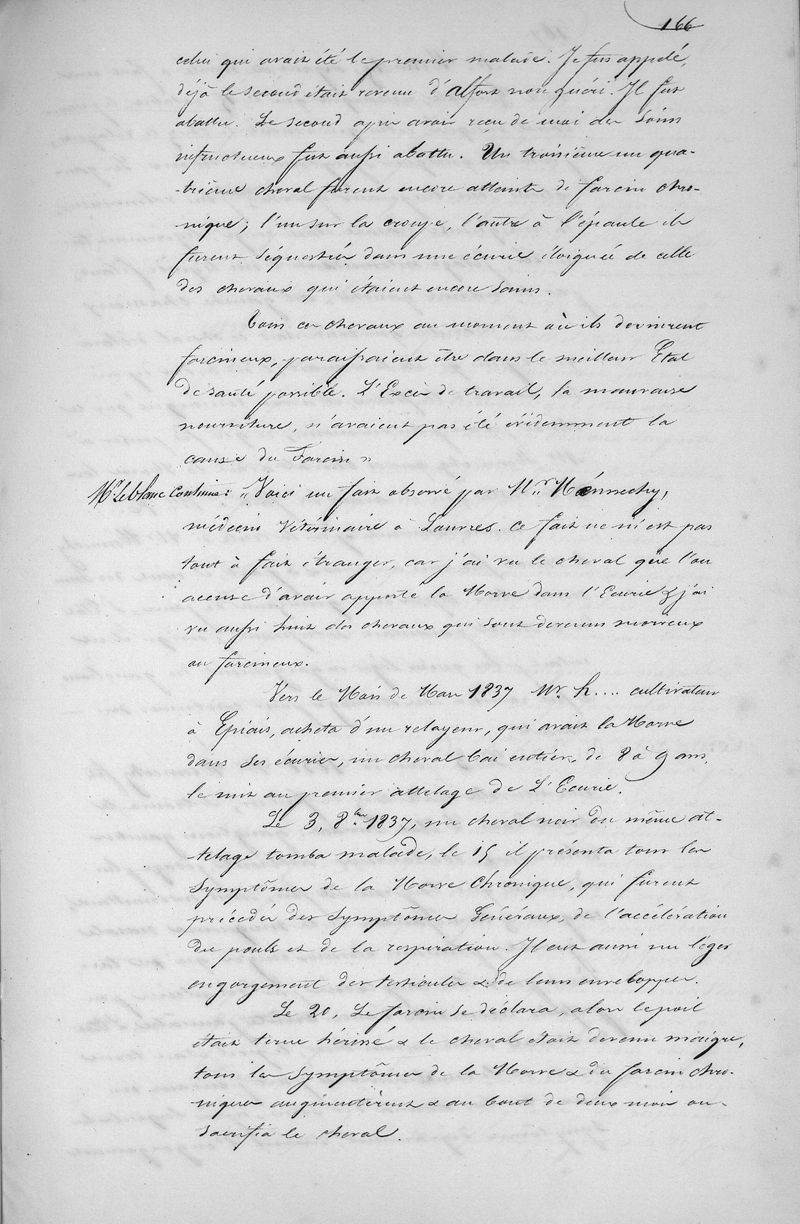 166
celui qui avait été le premier malade. Je fus appelé,
déjà le second était revenu d'alfort non guéri. Il fut
abattu. Le second après avoir reçu de moi des soins
infructueux fut aussi abattu. Un troisième un qua-
-trième cheval furent encore atteints de farcin chro-
nique; l'un sur la croupe, l'autre à l'épaule et
furent séquestrés dans une écurie éloignée de celle
des chevaux qui étaient encore sains.
Tous ces chevaux au moment où ils devinrent
farcineux, paraissaient être dans le meilleur Etat
de santé possible. L'Excès de travail, la mauvaise
nourriture, n'avaient pas été évidemment la
cause du Farcin"
Mr. leblanc continue: "Voici un fait observé par Mr. Ménnechy,
médecin vétérinaire à Louvres. Ce fait ne m'est pas
tout à fait étranger, car j'ai vu le cheval que l'on
accuse d'avoir apporté la Morve dans l'Ecurie & j'ai
vu aussi huit des chevaux qui sont devenus morveux
ou farcineux.
Vers le Mois de Mars 1837 Mr. h.... cultivateur
à Epiais, acheta d'un relayeur, qui avait la Morve
dans ses écuries, un cheval bai entier, de 8 à 9 ans,
le mit au premier attelage de L'Ecurie.
Le 3, 8bre 1837, un cheval noir du même at-
-telage tomba malade, le 15 il présenta tous les
Symptômes de la Morve Chronique, qui furent
précédés des Symptômes Généraux, de l'accélération
du pouls et de la respiration. Il eut aussi un léger
engorgement des testicules & de leurs enveloppes.
Le 20, Le farcin se déclara, alors le poil
était terne hérissé & le cheval était devenu maigre,
tous les Symptômes de la Morve & du farcin chro-
niques augmentèrent & au bout de deux mois on
sacrifia le cheval.